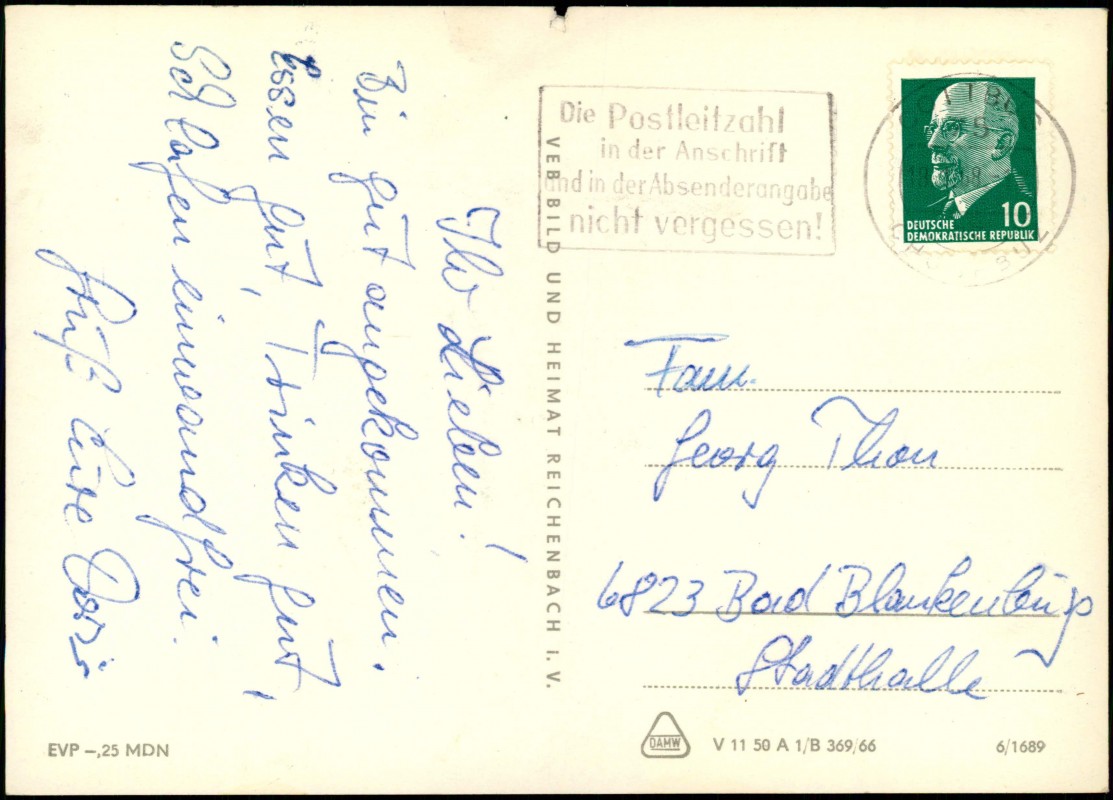 Ihr Lieben!
Bin gut angekommen.
Essen gut, Trinken gut,
Schlafen einwandfrei.
Gruß Eure Dorri
VEB BILD UND HEIMAT REICHENBACH I. V.
Die Postleitzahl
in der Anschrift
und in der Absenderangabe
nicht vergessen!
10
DEUTSCHE
DEMOKRATISCHE REPUBLIK
Fam.
Georg Thon
6823 Bad Blankenburg
Stadthalle
EVP –,25 MDN
DAMW
V 11 50 A 1/B 369/66
6/1689